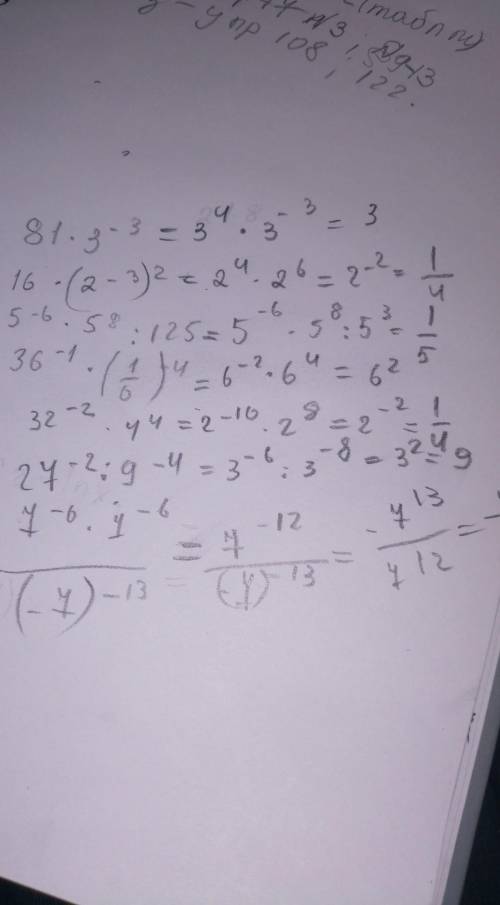 (табл
упр 108, 122.
81 · 3⁻³ = 3⁴ · 3⁻³ = 3
16 · (2 - 3)² = 2⁴ · 2⁶ = 2⁻² = 1/4
5⁻⁶ · 5⁸ : 125 = 5⁻⁶ · 5⁸ : 5³ = 1/5
36⁻¹ · (1/6)⁻⁴ = 6⁻² · 6⁴ = 6²
32⁻² · 4⁴ = 2⁻¹⁰ · 2⁸ = 2⁻² = 1/4
27⁻² : 9⁻⁴ = 3⁻⁶ : 3⁻⁸ = 3² = 9
7⁻⁶ · 7⁻⁶ / (-7)⁻¹³ = 7⁻¹² / (-7)⁻¹³ = -7¹³ / 7¹² =